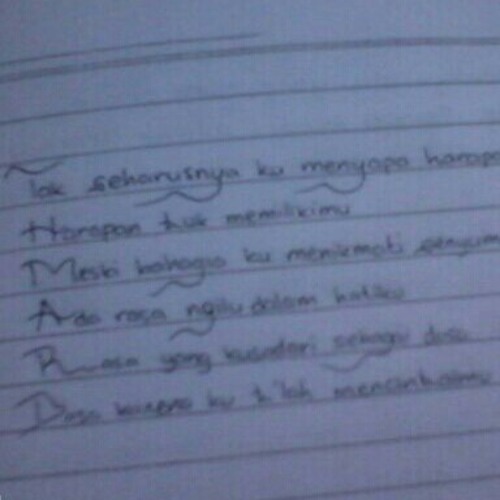 Tak seharusnya ku menyapa harapa
Harapan tuk memilikimu
Meski bahagia ku menikmati senyum
Ada rasa ngilu dalam hatiku
Rasa yang kusadari sebagai dosa
Dosa karena ku t'lah mencintaimu